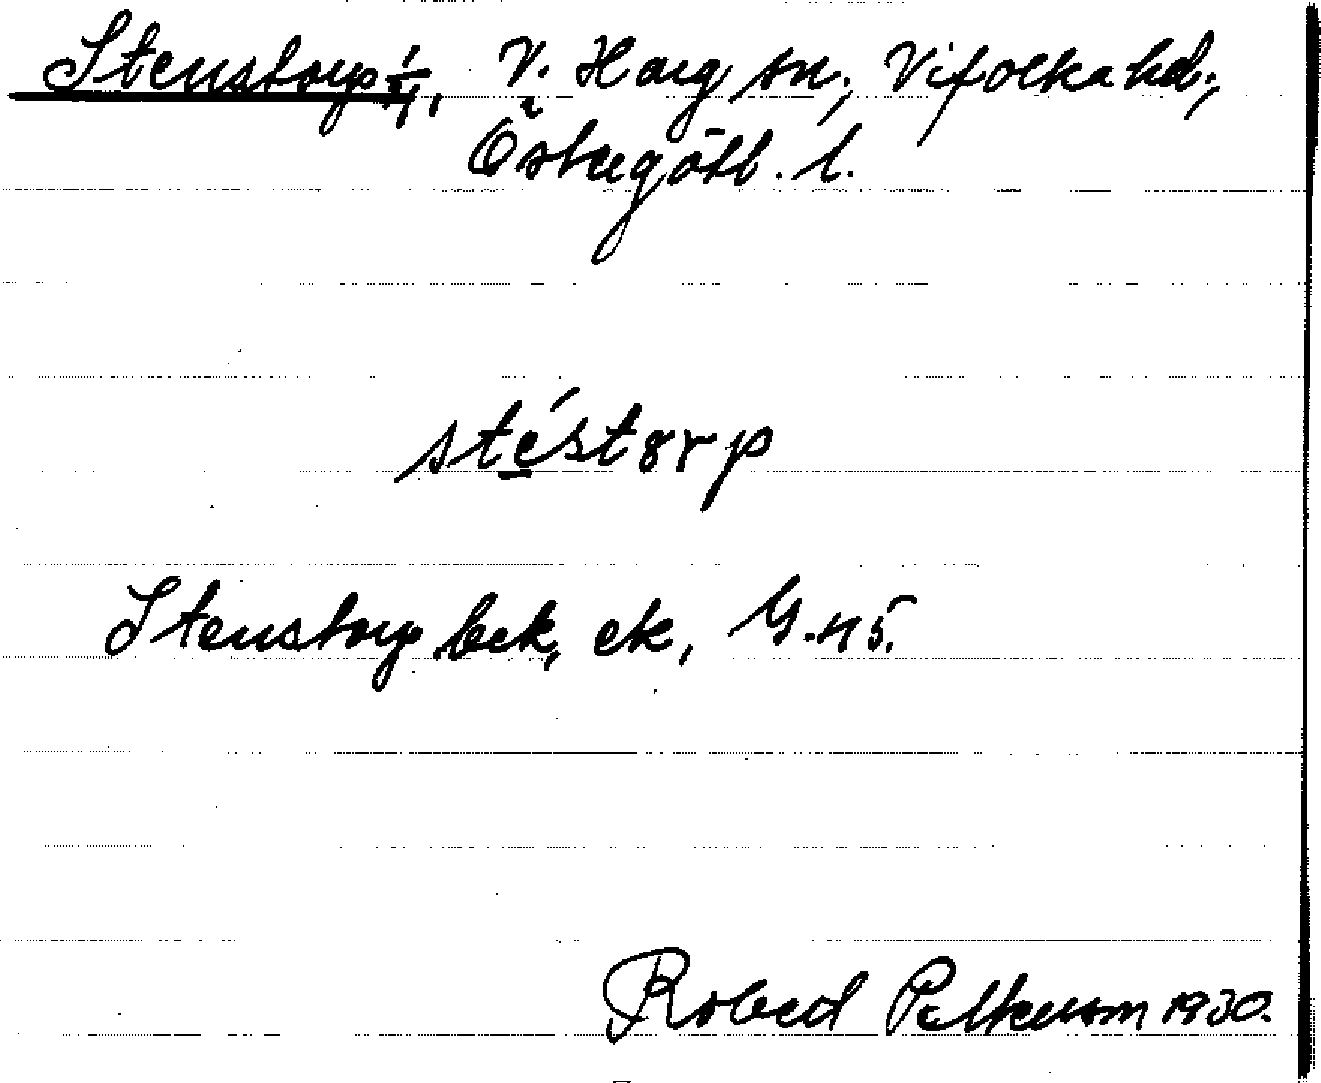 Stenstorp 1/1, V. Harg sn, Vifolka hd,
Östergötl. l.
stéstɤrp
Stenstorp bek, ek, G. 45.
Robert Pettersson 1930.